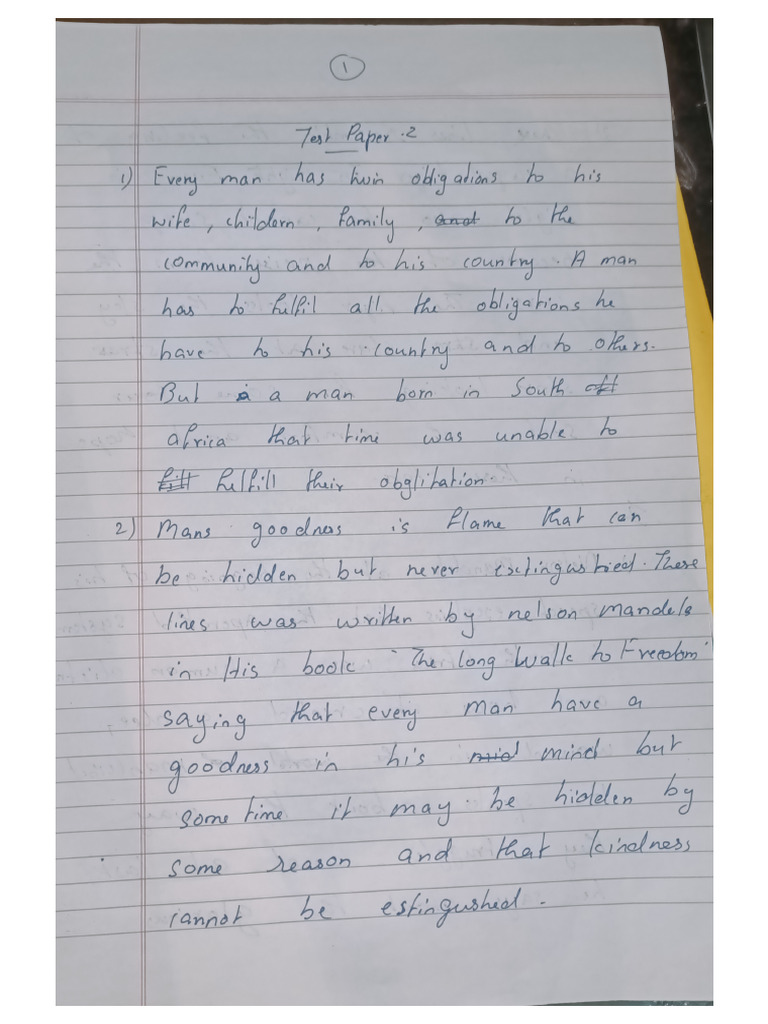 1
Test Paper.2
1) Every man has twin obligations to his
wife, childern, family, and to the
community and to his country. A man
has to fulfil all the obligations he
have to his country and to others.
But a man born in South
africa that time was unable to
fulfill their obglitation
2) Mans goodness is flame that can
be hidden but never These
lines was written by nelson mandela
in His book "The long Walk to Freedom"
saying that every man have a
goodness in his mind but
some time it may be hidden by
some reason and that kindness
cannot be estingushed.